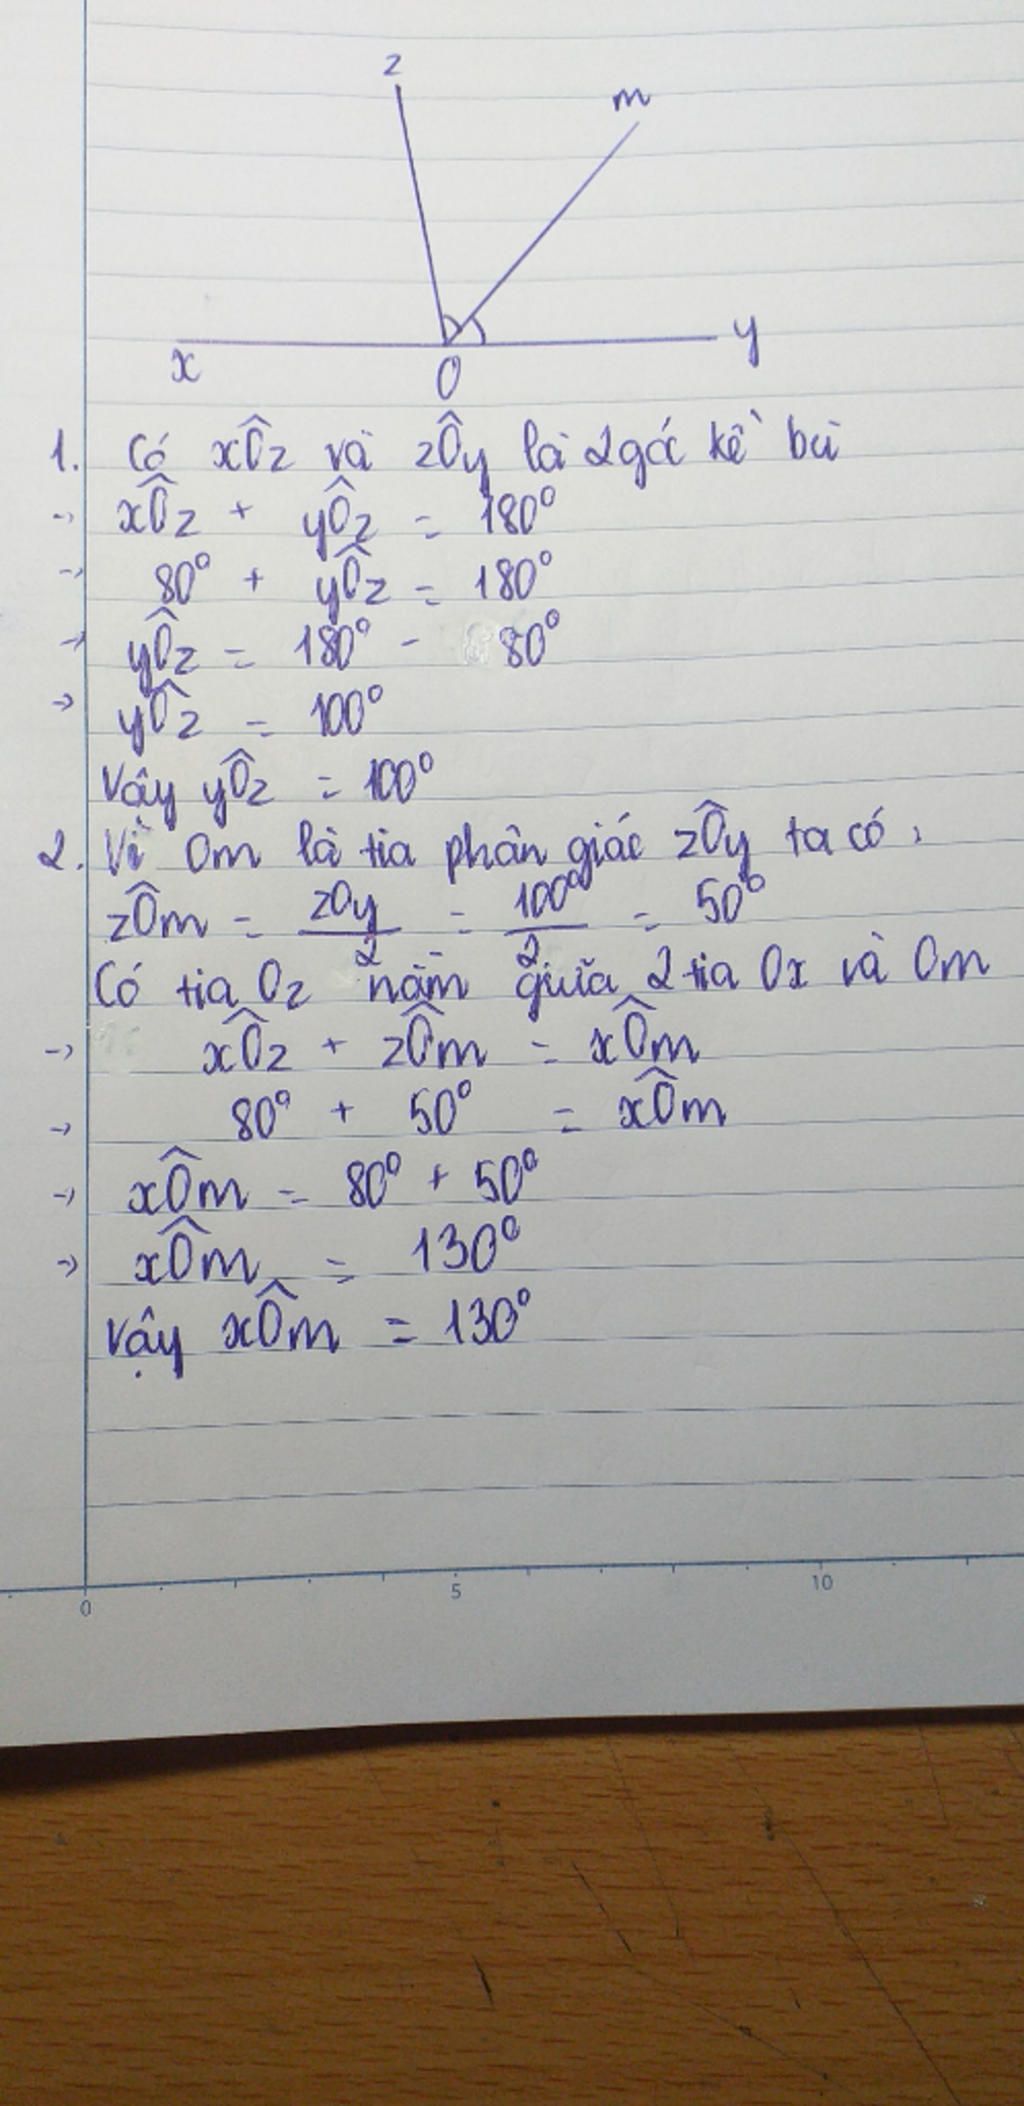 z
m
x
O
y
1. Có xÔz và zÔy là 2 góc kề bù
-> xÔz + yÔz = 180°
-> 80° + yÔz = 180°
-> yÔz = 180° - 80°
-> yÔz = 100°
Vậy yÔz = 100°
2. Vì Om là tia phân giác zÔy ta có:
zÔm = zOy/2 = 100°/2 = 50°
Có tia Oz nằm giữa 2 tia Ox và Om
-> xÔz + zÔm = xÔm
-> 80° + 50° = xÔm
-> xÔm = 80° + 50°
-> xÔm = 130°
Vậy xÔm = 130°
0 5 10